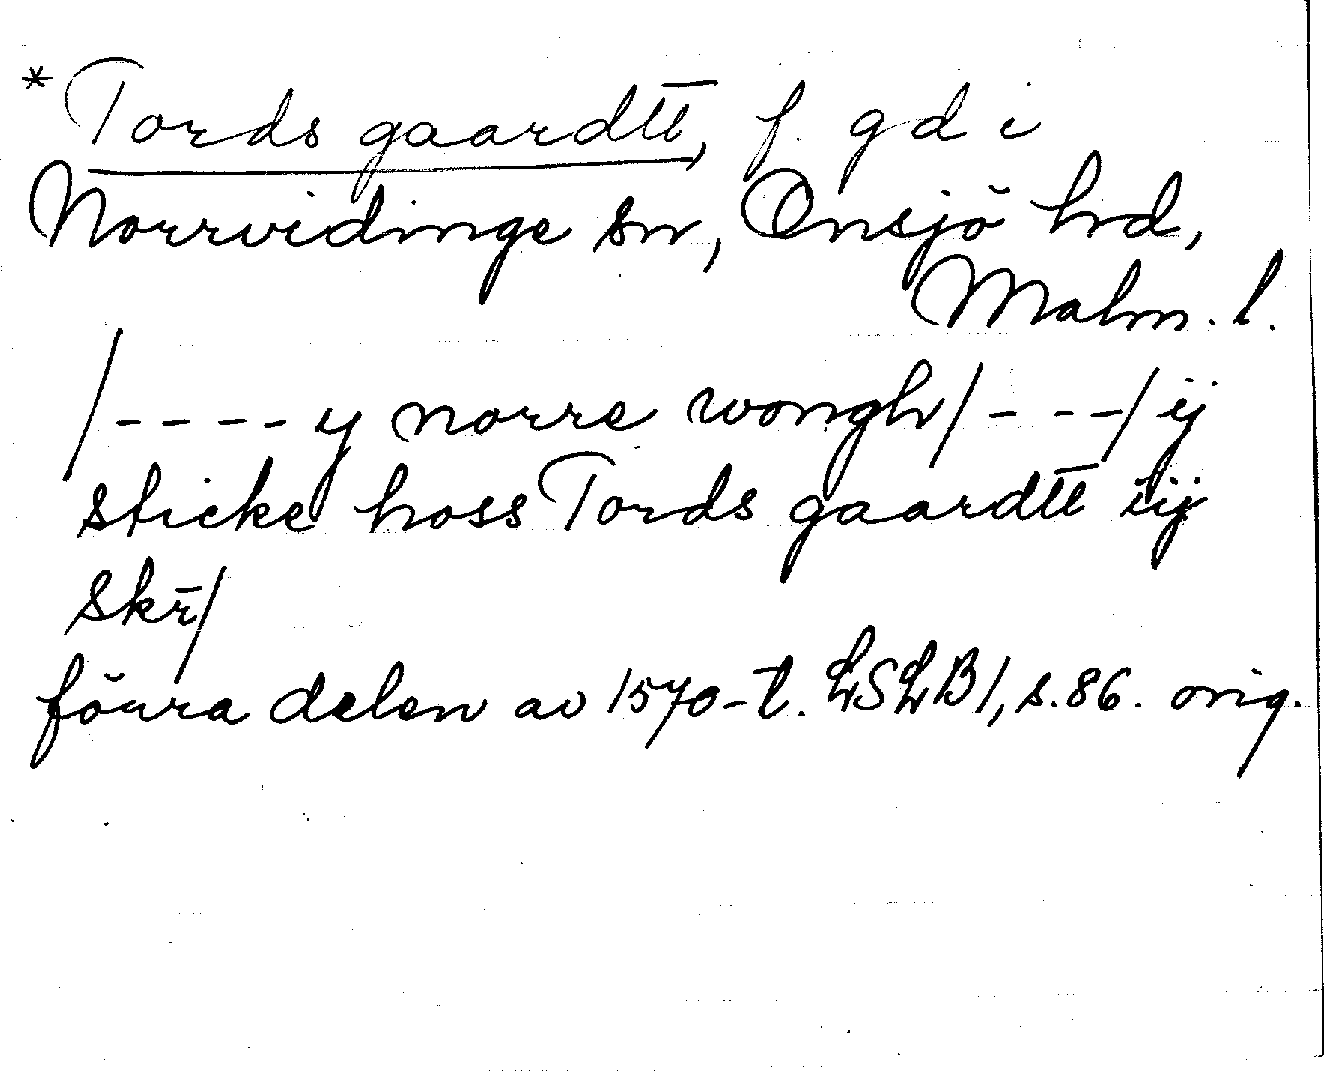 *Tords gaardtt̅, f. gd i
Norrvidinge sn, Onsjö hrd,
Malm. l.
/---- y norre wongh/---/ ij
sticke hoss Tords gaardtt̅ iij
skr̄/
förra delen av 1570-t. LSLB1, s.86. orig.